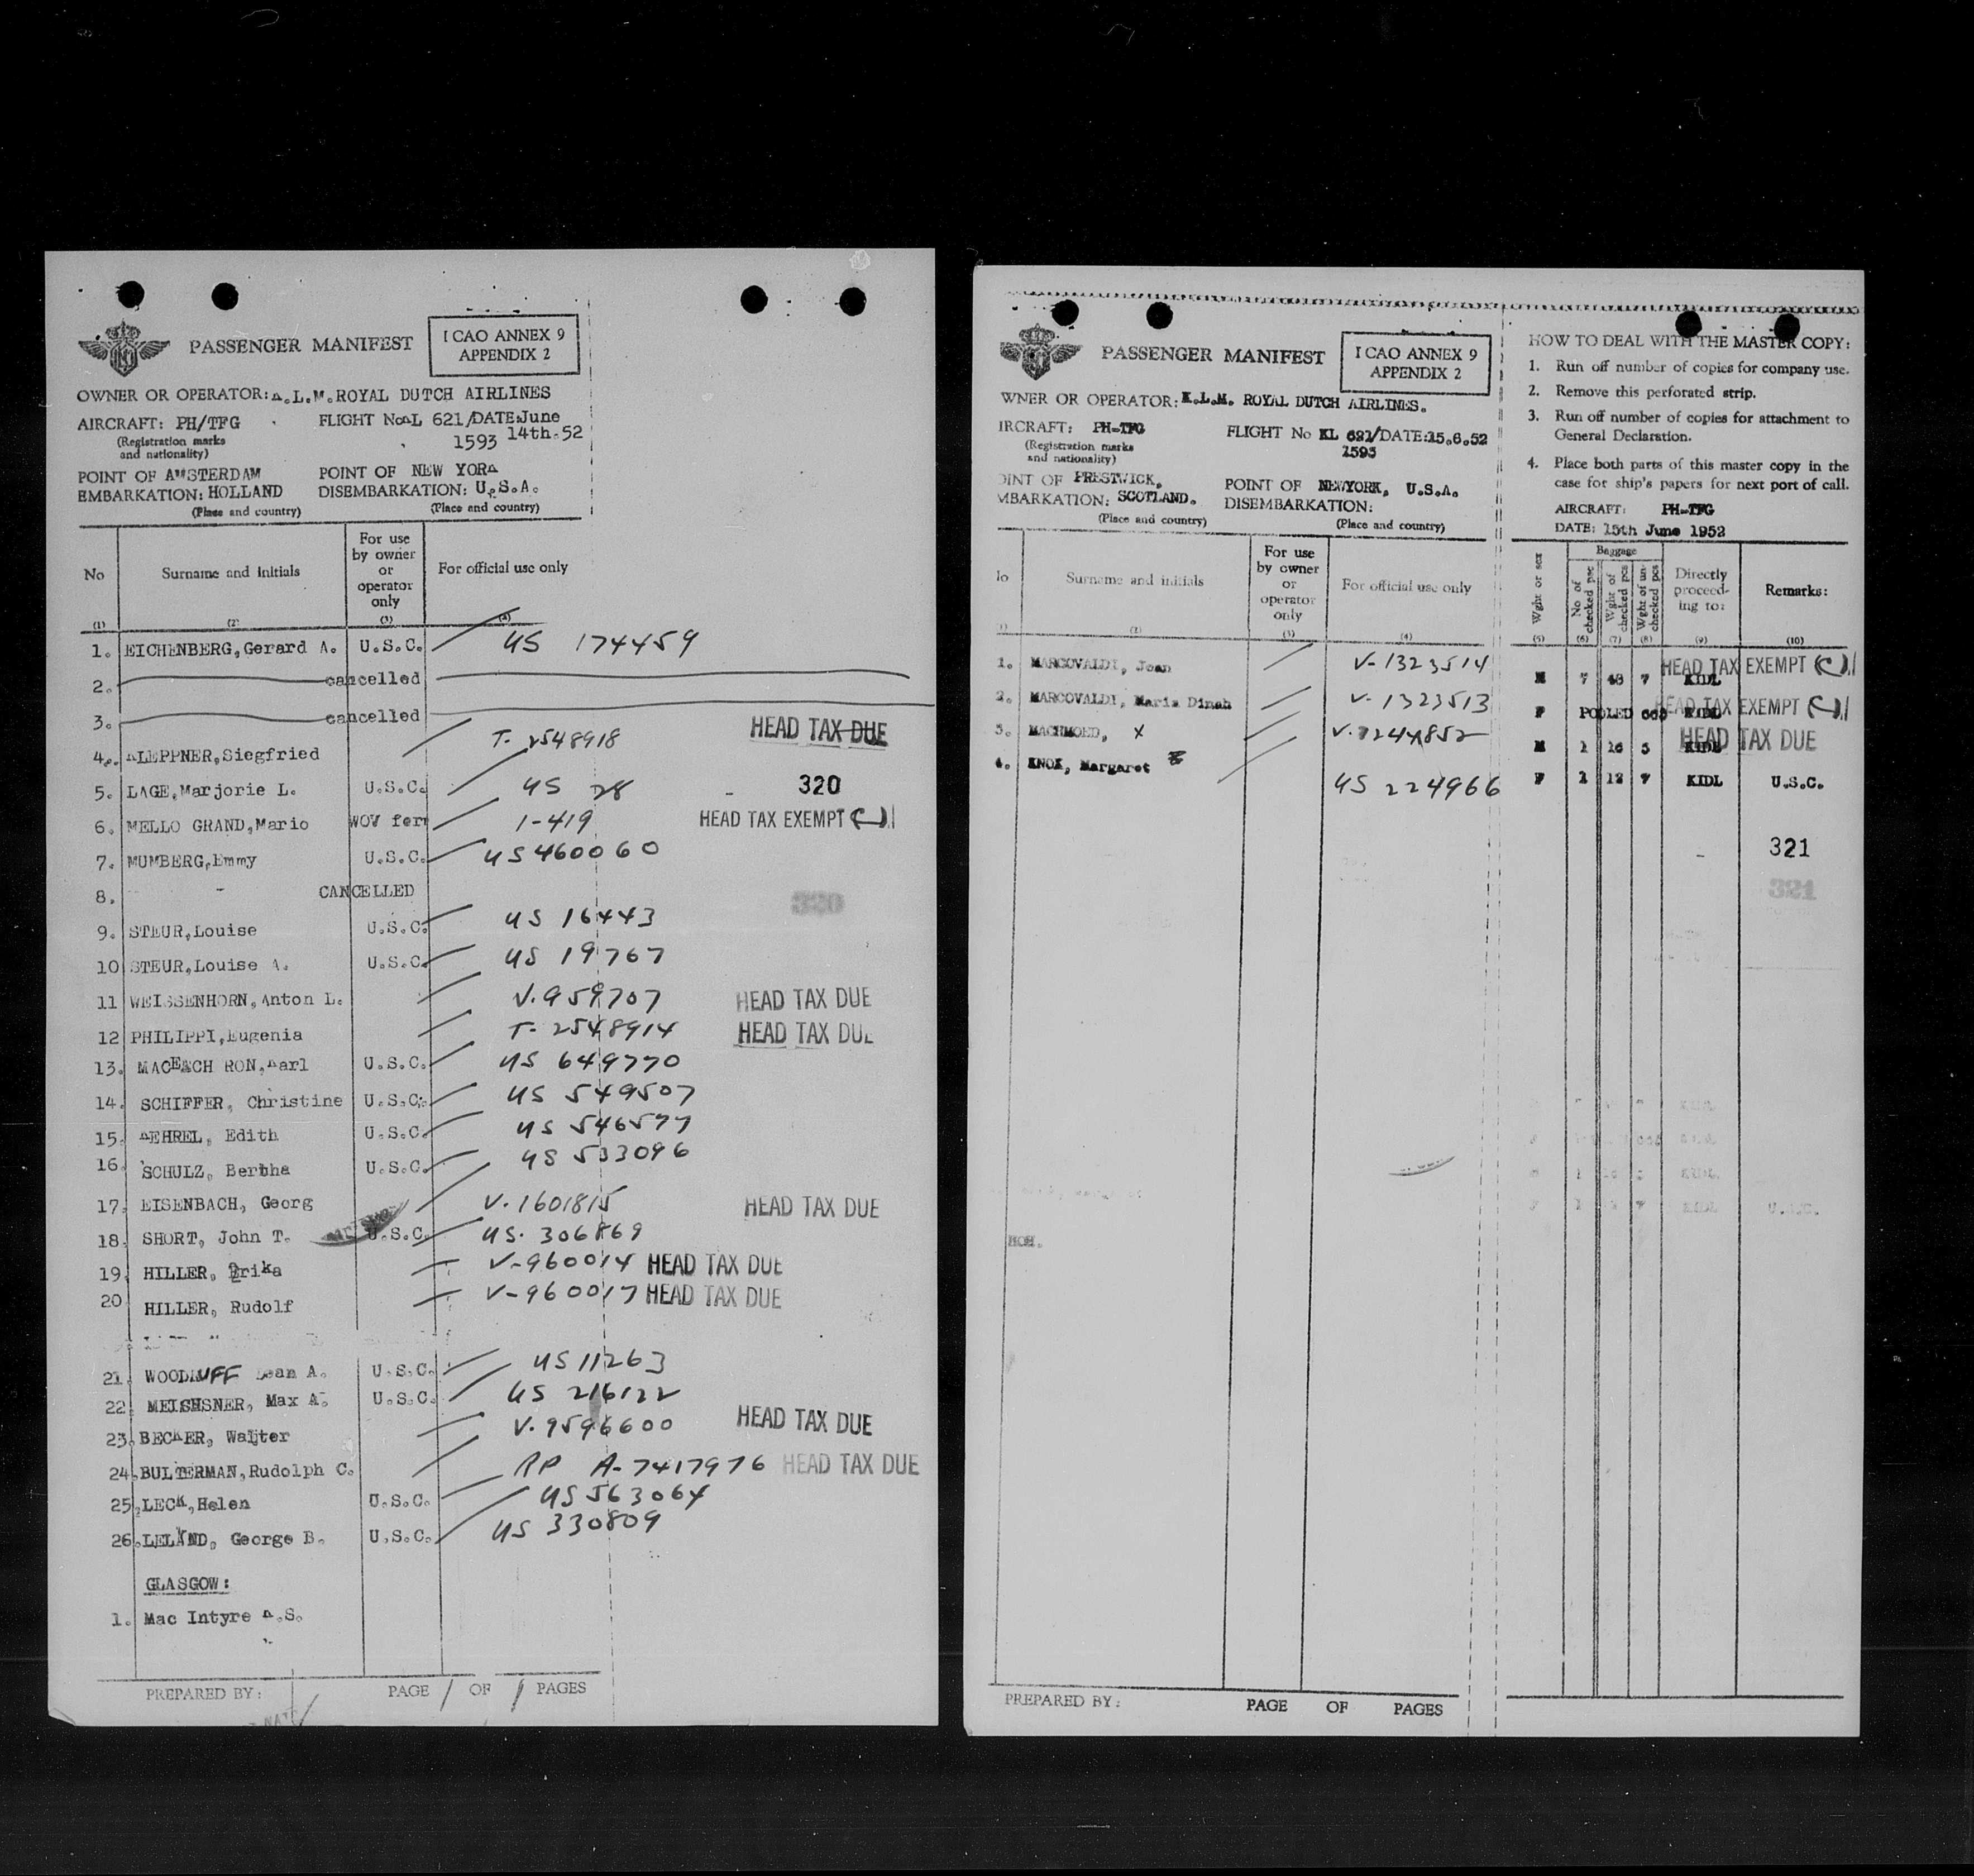 PASSENGER MANIFEST
I CAO ANNEX 9
APPENDIX 2
OWNER OR OPERATOR: K.L.M. ROYAL DUTCH AIRLINES
AIRCRAFT: PH/TFG FLIGHT No KL 621/DATE: June
(Registration marks and nationality) 1593 14th.52
POINT OF AMSTERDAM POINT OF NEW YORK
EMBARKATION: HOLLAND DISEMBARKATION: U.S.A.
(Place and country) (Place and country)
No Surname and initials For use by owner or operator only For official use only
(1) (2) (3) (4)
1. EICHENBERG, Gerard A. U.S.C. US 174459
2. cancelled
3. cancelled
4. KLEPPNER, Siegfried T-2548918 HEAD TAX DUE
5. LAGE, Marjorie L. U.S.C. US 28 - 320
6. MELLO GRAND, Mario 1-419 HEAD TAX EXEMPT
7. MUMBERG, Emmy U.S.C. US 460060
8. - CANCELLED
9. STEUR, Louise U.S.C. US 16443
10 STEUR, Louise A. U.S.C. US 19767
11 WEISSENHORN, Anton L. V.959707 HEAD TAX DUE
12 PHILIPPI, Eugenia T-2548914 HEAD TAX DUE
13. MACEACH RON, Karl U.S.C. US 649770
14. SCHIFFER, Christine U.S.C. US 549507
15. KEHREL, Edith U.S.C. US 546577
16. SCHULZ, Bertha U.S.C. US 533096
17. EISENBACH, Georg V.1601815 HEAD TAX DUE
18. SHORT, John T. U.S.C. US. 306869
19. HILLER, Erika V-960014 HEAD TAX DUE
20 HILLER, Rudolf V-960017 HEAD TAX DUE
21. WOODRUFF Dean A. U.S.C. US 11263
22. MEISHSNER, Max A. U.S.C. US 216122
23. BECKER, Walter V.9596600 HEAD TAX DUE
24. BULTERMAN, Rudolph C. RP A-7417976 HEAD TAX DUE
25. LECK, Helen U.S.C. US 563064
26. LELAND, George B. U.S.C. US 330809
GLASGOW:
1. Mac Intyre K.S.
PREPARED BY: PAGE 1 OF 1 PAGES
PASSENGER MANIFEST
I CAO ANNEX 9
APPENDIX 2
WNER OR OPERATOR: K.L.M. ROYAL DUTCH AIRLINES.
IRCRAFT: PH-TFG FLIGHT No KL 621/DATE: 15.6.52
(Registration marks and nationality) 1593
OINT OF PRESTWICK, POINT OF NEWYORK, U.S.A.
MBARKATION: SCOTLAND. DISEMBARKATION:
(Place and country) (Place and country)
lo Surname and initials For use by owner or operator only For official use only
(2) (3) (4)
1. MARCOVALDI, Jean V-1323514
2. MARCOVALDI, Maria Dinah V-1323513
3. MACHMOED, X V.7244852
4. KNOX, Margaret US 224966
MOH.
PREPARED BY: PAGE OF PAGES
HOW TO DEAL WITH THE MASTER COPY:
1. Run off number of copies for company use.
2. Remove this perforated strip.
3. Run off number of copies for attachment to
General Declaration.
4. Place both parts of this master copy in the
case for ship's papers for next port of call.
AIRCRAFT: PH-TFG
DATE: 15th June 1952
Wght or sex Baggage No of checked pcs Wght of checked pcs Wght of unchecked pcs Directly proceeding to: Remarks:
(5) (6) (7) (8) (9) (10)
M 7 48 7 KIDL HEAD TAX EXEMPT
F POOLED KIDL HEAD TAX EXEMPT
M 1 16 5 KIDL HEAD TAX DUE
F 1 12 7 KIDL U.S.C.
- 321